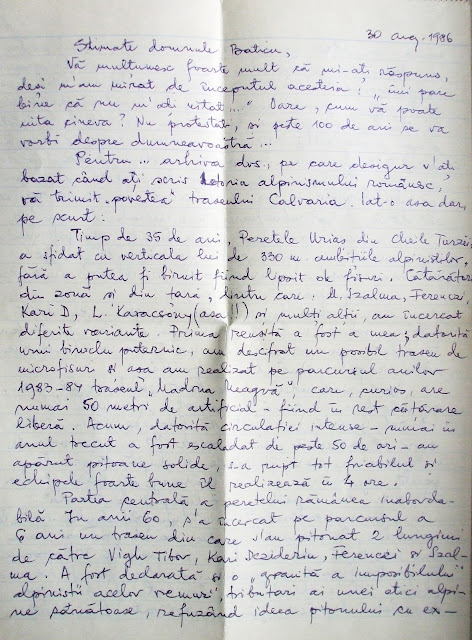 30 aug. 1986
Stimate domnule Baticu,
Vă mulțumesc foarte mult că mi-ați răspuns,
deși m'am mirat de începutul acesteia: „îmi pare
bine că nu m'ați uitat..." Oare, cum vă poate
uita cineva? Nu protestați, și peste 100 de ani se va
vorbi despre dumneavoastră...
Pentru... arhiva dvs, pe care desigur v'ați
bazat când ați scris Istoria alpinismului românesc,
vă trimit „povestea" traseului Calvaria. Iat-o așa dar,
pe scurt:
Timp de 35 de ani, Peretele Uriaș din Cheile Turzii
a sfidat cu verticala lui de 330 m ambițiile alpiniștilor,
fără a putea fi biruit fiind lipsit de fisuri. Cățărători
din zonă și din țară, dintre care: M. Szalma, Ferenczi,
Kari D, L. Karacsony (așa!!) și mulți alții, au încercat
diferite variante. Prima reușită a fost a mea; datorită
unui binoclu puternic, am descifrat un posibil traseu de
microfisuri și așa am realizat pe parcursul anilor
1983-84 traseul „Madona Neagră", care, curios, are
numai 50 metri de artificial - fiind în rest cățărare
liberă. Acum, datorită circulației intense - numai în
anul trecut a fost escaladat de peste 50 de ori - au
apărut pitoane solide, s-a rupt tot friabilul și
echipele foarte bune îl realizează în 4 ore.
Partea centrală a peretelui rămânea inaborda-
bilă. În anii 60, s'a încercat pe parcursul a
6 ani un traseu din care s'au pitonat 2 lungimi
de către Vigh Tibor, Kari Dezideriu, Ferenczi și Szal-
ma. A fost declarată și o „graniță a imposibilului"
alpiniștii acelor vremuri tributari ai unei etici alpi-
ne sănătoase, refuzând ideea pitonului cu ex-